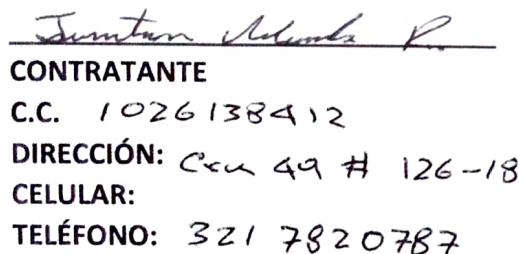 CONTRATANTE
C.C. 1026138412
DIRECCIÓN: Cra 49 # 126-18
CELULAR:
TELÉFONO: 321 7820787